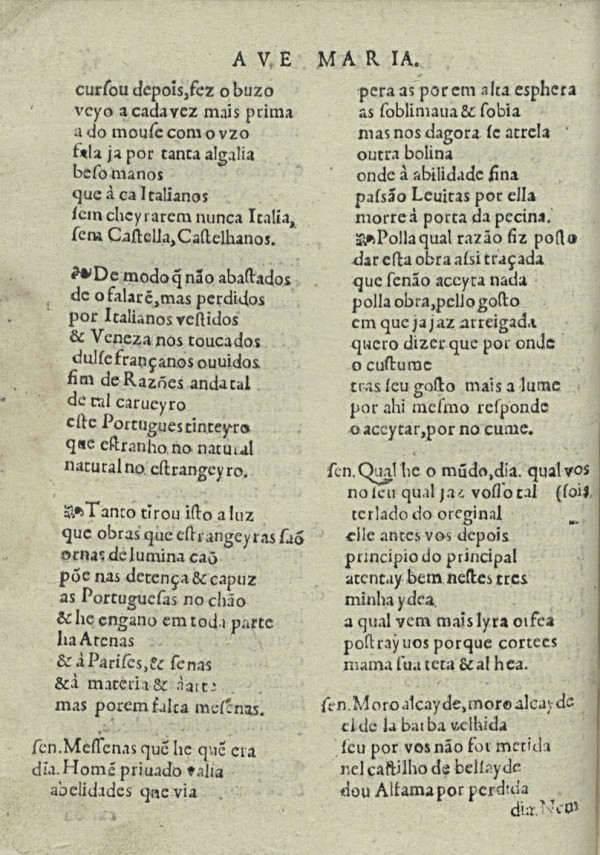 AVE MARIA.
cursou depois, fez o buzo
veyo a cada vez mais prima
a do mouse com o vzo
fala ja por tanta algalia
beso manos
que à ca Italianos
sem cheyrarem nunca Italia,
sem Castella, Castelhanos.
❧De modo q̃ não abastados
de o falarẽ, mas perdidos
por Italianos vestidos
& Veneza nos toucados
dulse françanos ouuidos
fim de Razões anda tal
de tal carueyro
este Portugues tinteyro
que estranho no natural
natural no estrangeyro.
❧Tanto tirou isto a luz
que obras que estrangeyras saõ
ornas de lumina caõ
põe nas detença & capuz
as Portuguesas no chão
& he engano em toda parte
ha Atenas
& à Parises, & senas
& à materia & àarte
mas porem falta mesenas.
sen. Messenas quẽ he quẽ era
dia. Homẽ priuado valia
abelidades que via
pera as por em alta esphera
as soblimaua & sobia
mas nos dagora se atrela
outra bolina
onde à abilidade fina
passão Leuitas por ella
morre à porta da pecina.
❧Polla qual razão fiz posto
dar esta obra assi traçada
que senão aceyta nada
polla obra, pello gosto
em que ja jaz arreigada
quero dizer que por onde
o custume
tras seu gosto mais a lume
por ahi mesmo responde
o aceytar, por no cume.
sen. Qual he o mũdo, dia. qual vos
no seu qual jaz vosso tal (sois,
terlado do oreginal
elle antes vos depois
principio do principal
atentay bem nestes tres
minha ydea
a qual vem mais lyra orfea
postrayuos porque cortees
mama sua teta & al hea.
sen. Moro alcayde, moro alcayde
el de la barba velhida
seu por vos não for metida
nel castilho de belsayde
dou Alfama por perdida
dia. Nem